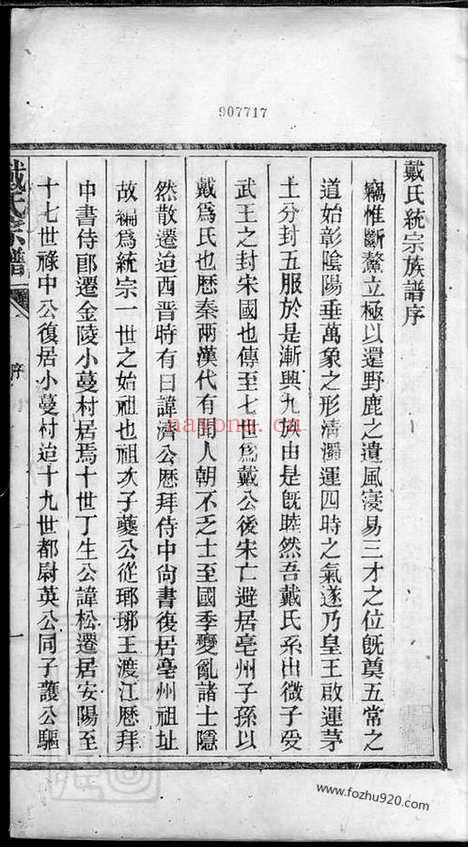 907717
戴氏統宗族譜序
竊惟斷鰲立極以還野鹿之遺風寖易三才之位旣奠五常之
道始彰陰陽垂萬象之形清濁運四時之氣遂乃皇王啟運茅
土分封五服於是漸興九族由是旣睦然吾戴氏系由微子受
武王之封宋國也傳至七世爲戴公後宋亡避居亳州子孫以
戴爲氏也歷秦兩漢代有聞人朝不乏士至國季變亂諸士隱
然散遷迨西晋時有曰諱濟公歷拜侍中尙書復居亳州祖址
故編爲統宗一世之始祖也祖次子夔公從瑯琊王渡江歷拜
中書侍郎遷金陵小蔓村居焉十世丁生公諱松遷居安陽至
十七世祿中公復居小蔓村迨十九世都尉英公同子護公驅
戴氏宗譜
序
一
nayona.ca
www.fozhu920.com